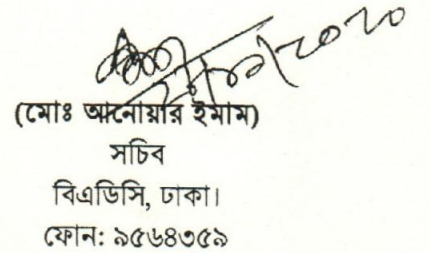 (মোঃ আনোয়ার ইমাম)
সচিব
বিএডিসি, ঢাকা।
ফোন: ৯৫৬৪৩৫৯